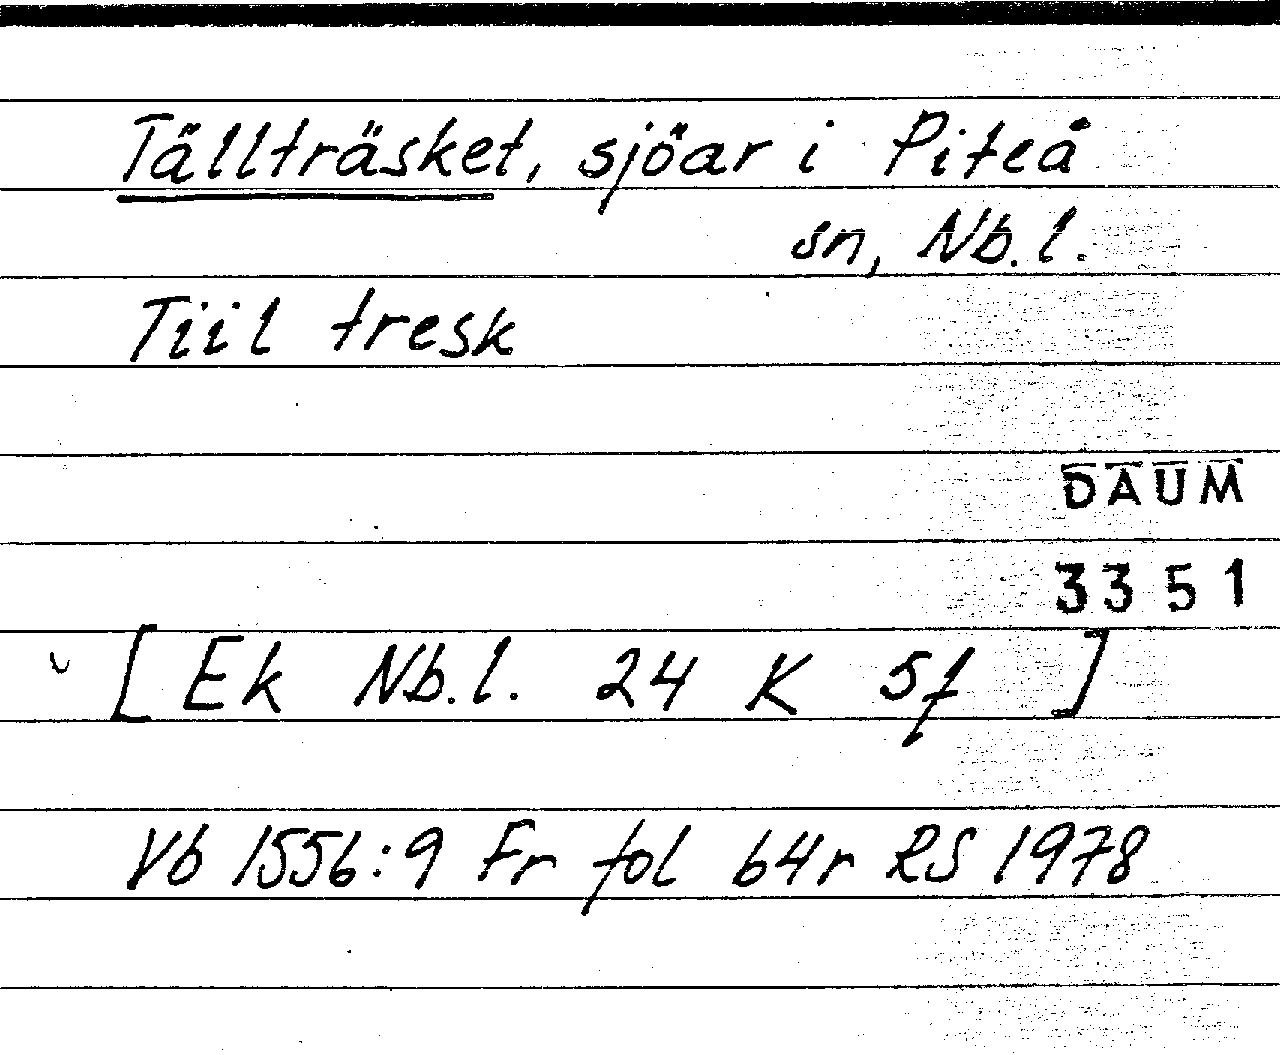 Tällträsket, sjöar i Piteå
sn, Nb.l.
Tiil tresk
DAUM
3351
[Ek Nb.l. 24 K 5f ]
Vb 1556:9 Fr fol 64r RS 1978